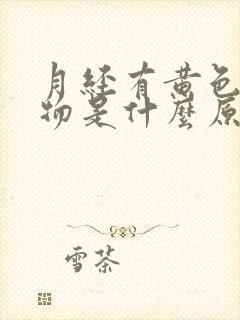 月经有黄色
物是什麼原
雪茶